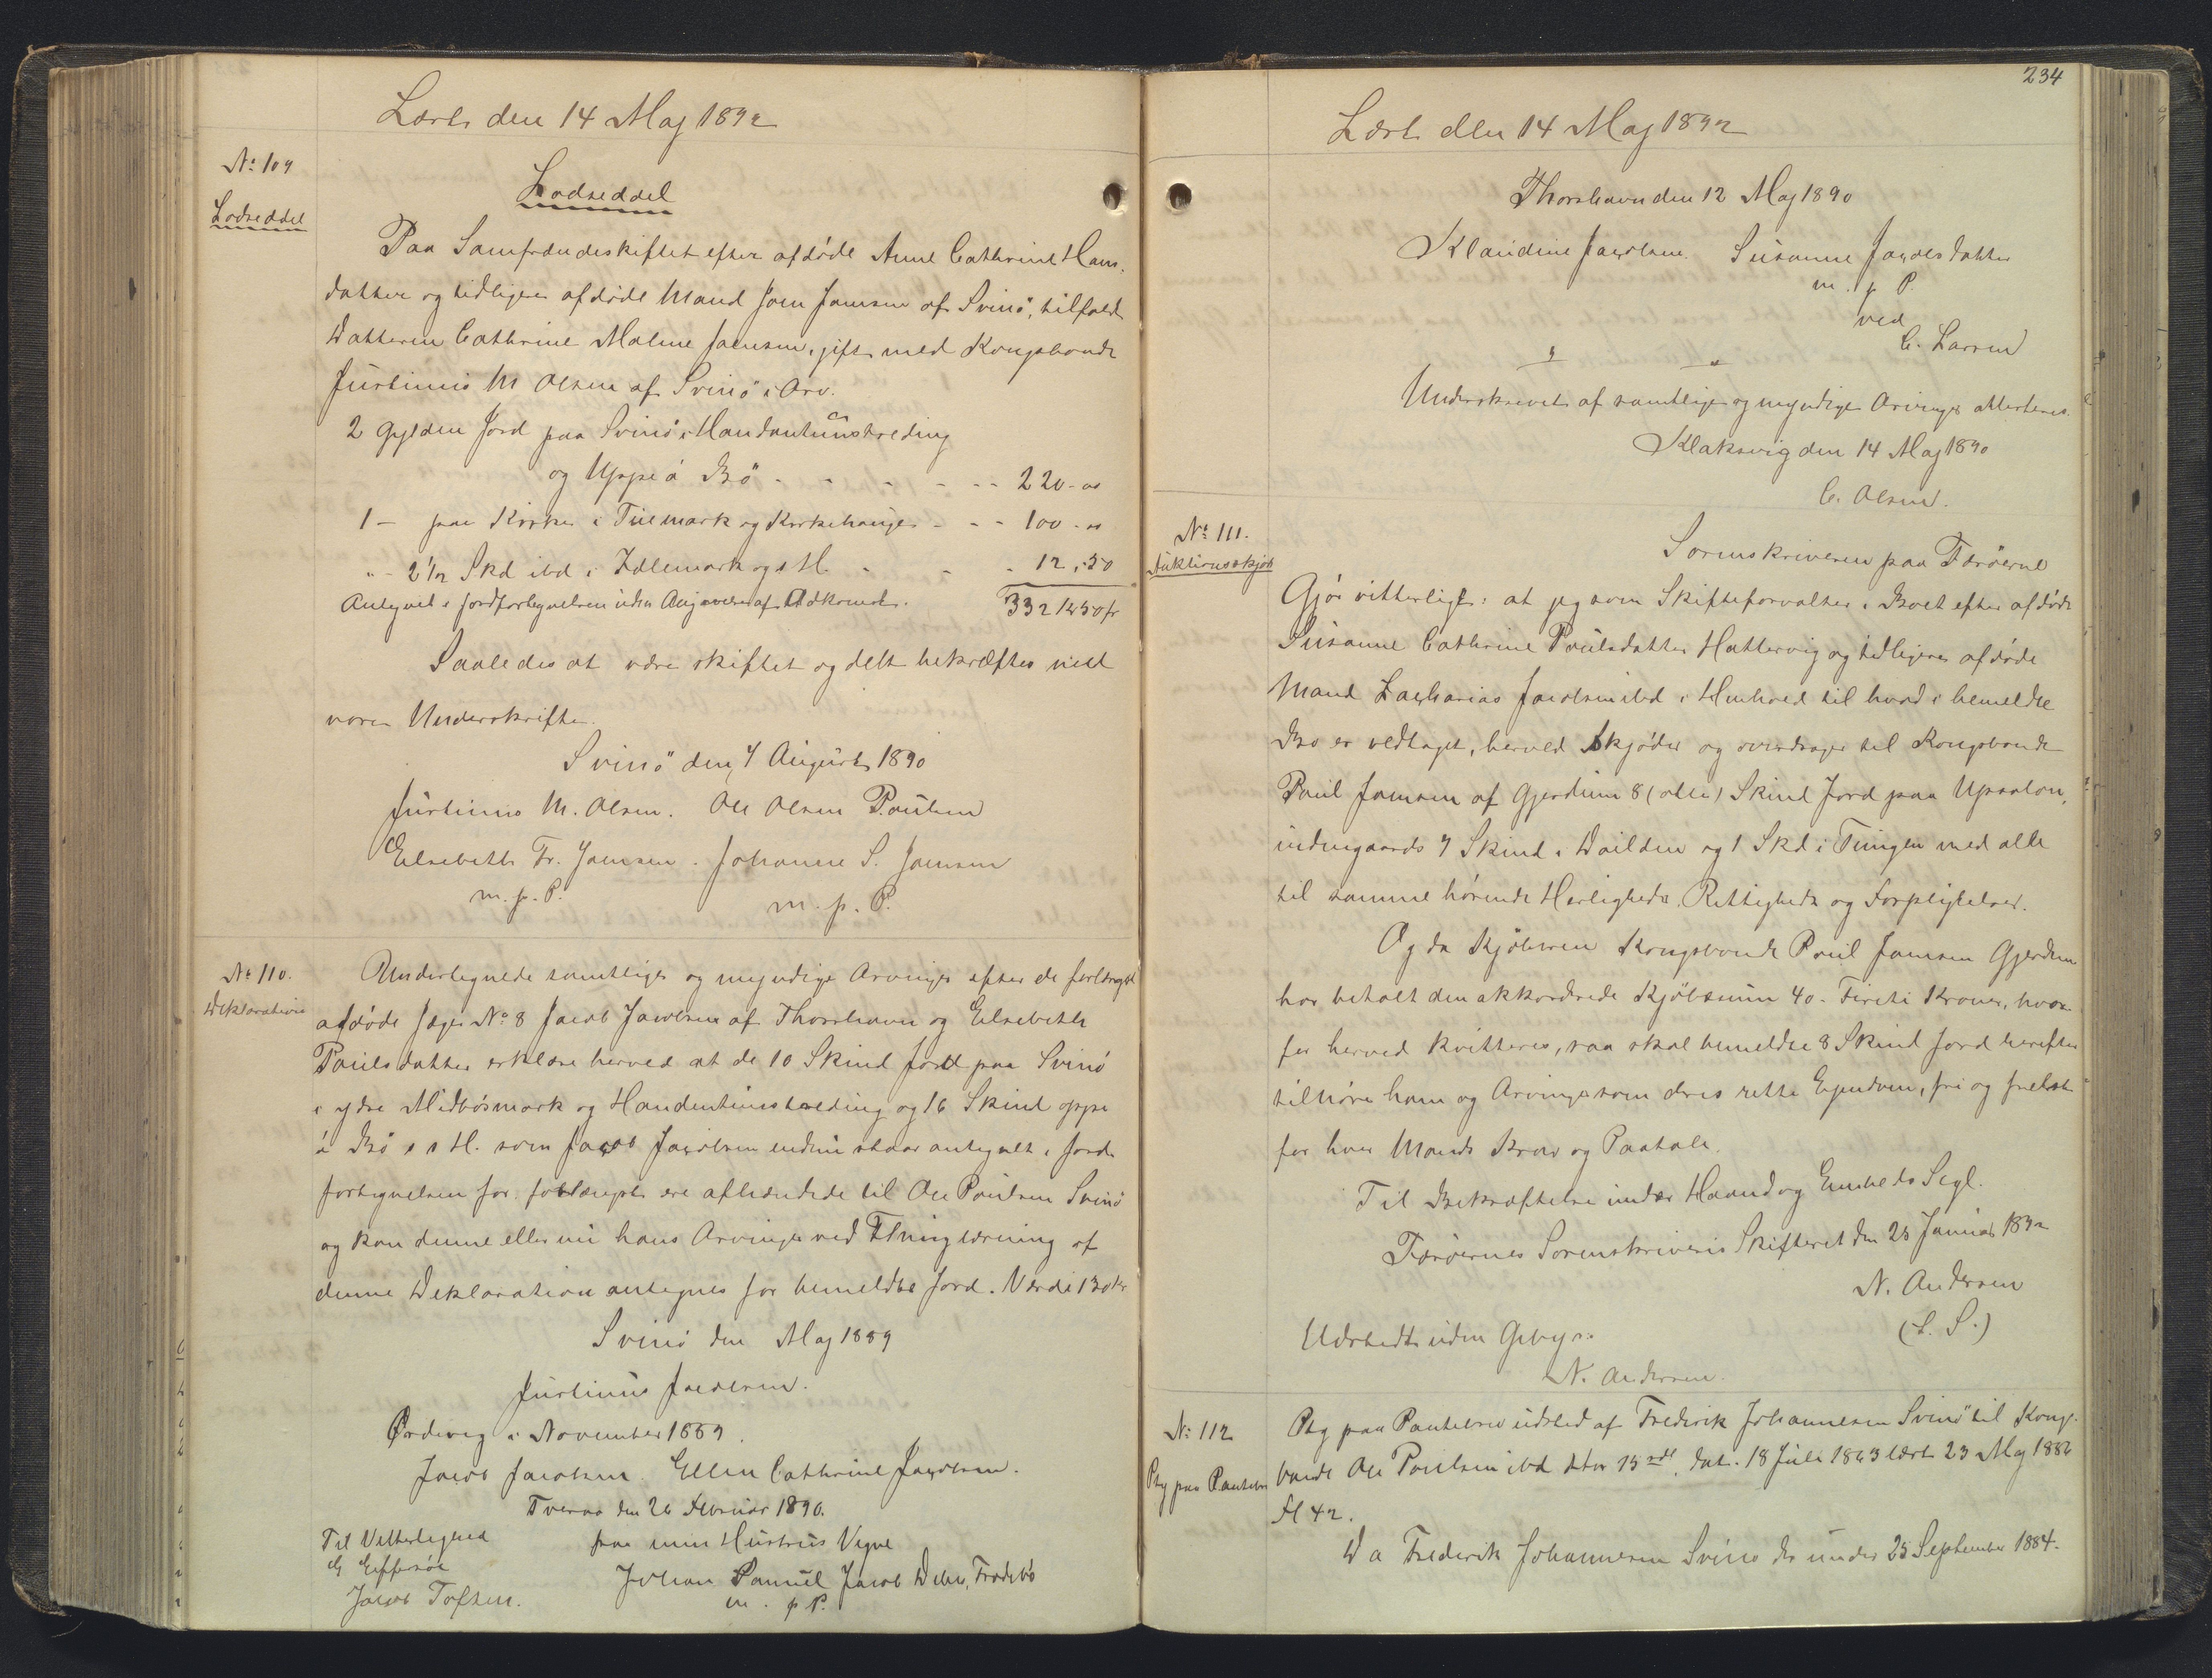 Læst den 14 Maj 1892
No 109
Lodseddel
Lodseddel
Paa Samfrændeskiftet efter afdøde Anne Cathrine Hans-
datter og tidligere afdøde Mand Joen Joensen af Svinö, tilfaldt
Datteren Cathrine Maline Joensen, gift med Kongsbonde
Justinus M Olsen af Svinö i Arv.
2 Gylden Jord paa Svinö i Handantúnstreding
og Uppi á Bö - - - - - - 220-00
1 - paa Kirke i Túemark og Kirkehauge - - - 100-00
" - 2 1/2 Skd ibd i og s H. - - - 12,50
Antegnet i Jordfortegnelsen uden Angivelse af Adkomst. 332 Kr 50 ør
Saaledes at være skiftet og delt bekræftes med
vore Underskrifter.
Svinö den 7 August 1890
Justinus M. Olsen. Ole Olsen Poulsen
Elsebeth Fr. Joensen. Johanne S. Joensen
m. p. P. m. p. P.
No 110.
Deklaration
Undertegnede samtlige og myndige Arvinger efter de forlængst
afdøde Jæger No 8 Jacob Jacobsen af Thorshavn og Elsebeth
Poulsdatter erklære herved at de 10 Skind Jord paa Svinö
i ydre Midbösmark og Handentúnstreding og 16 Skind oppe
á Bö s s H. som Jacob Jacobsen endnu staar antegnet i Jorde-
fortegnelsen for, forlængst ere afhændede til Ole Poulsen Svinö
og kan denne eller nu hans Arvinger ved Thinglæsning af
denne Deklaration antegnes for bemeldte Jord. Værdi 130 Kr
Svinö den Maj 1889
Justinus Jacobsen.
Ördevig i November 1889.
Jacob Jacobsen. Ellen Cathrine Jacobsen.
Tveraa den 26 Februar 1890.
Til Vitterlighed paa min Hustrus Vegne
G Effersöe Johan Samuel Jacob Frodebö
Jacob Toftsen. m. p P.
234
Læst den 14 Maj 1892
Thorshavn den 12 Maj 1890
Klaudine Jacobsen. Susanne Jacobsdatter
m. p P.
ved
C. Larsen
Underskrevet af samtlige og myndige Arvinger attesteres.
Klaksvig den 14 Maj 1890
C. Olsen.
No 111.
Auktionsskjøde
Sorenskriveren paa Færöerne
Gjør vitterligt: at jeg som Skifteforvalter i Boet efter afdøde
Susanne Cathrine Poulsdatter Hattervig og tidligere afdøde
Mand Zacharias Jacobsen ibd i Henhold til hvad i bemeldte
Bo er vedtaget, herved skjøder og overdrager til Kongsbonde
Poul Joensen af Gjerdum 8 (otte) Skind Jord paa Upsalon,
indengaards 7 Skind i Dailden og 1 Skd i Tungen med alle
til samme hørende Herligheder, Rettigheder og Forpligtelser.
Og da Kjøberen Kongsbonde Poul Joensen Gjerdum
har betalt den akkorderede Kjøbesum 40 - Fireti Kroner, hvor-
for herved kvitteres, saa skal bemeldte 8 Skind Jord herefter
tilhøre ham og Arvinger som deres rette Ejendom, fri og frelst
for hver Mands Krav og Paatale.
Til Bekræftelse under Haand og Embeds Segl.
Færöernes Sorenskriveris Skifteret den 25 Januar 1892
N. Andersen
(L. S.)
Udstedt uden Gebyr.
N. Andersen.
No 112
Ptg paa Pantebrev
Ptg paa Pantebrev udsted af Frederik Johannesen Svinö til Kongs-
bonde Ole Poulsen ibd stor 15 rdl, dat. 18 Juli 1863 læst 23 Maj 1886
fl 42.
Da Frederik Johannesen Svinö der under 25 September 1884.